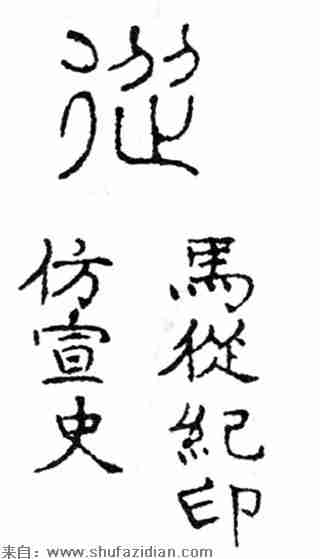 從
馬從紀印
仿宣史
来自：www.shufazidian.com